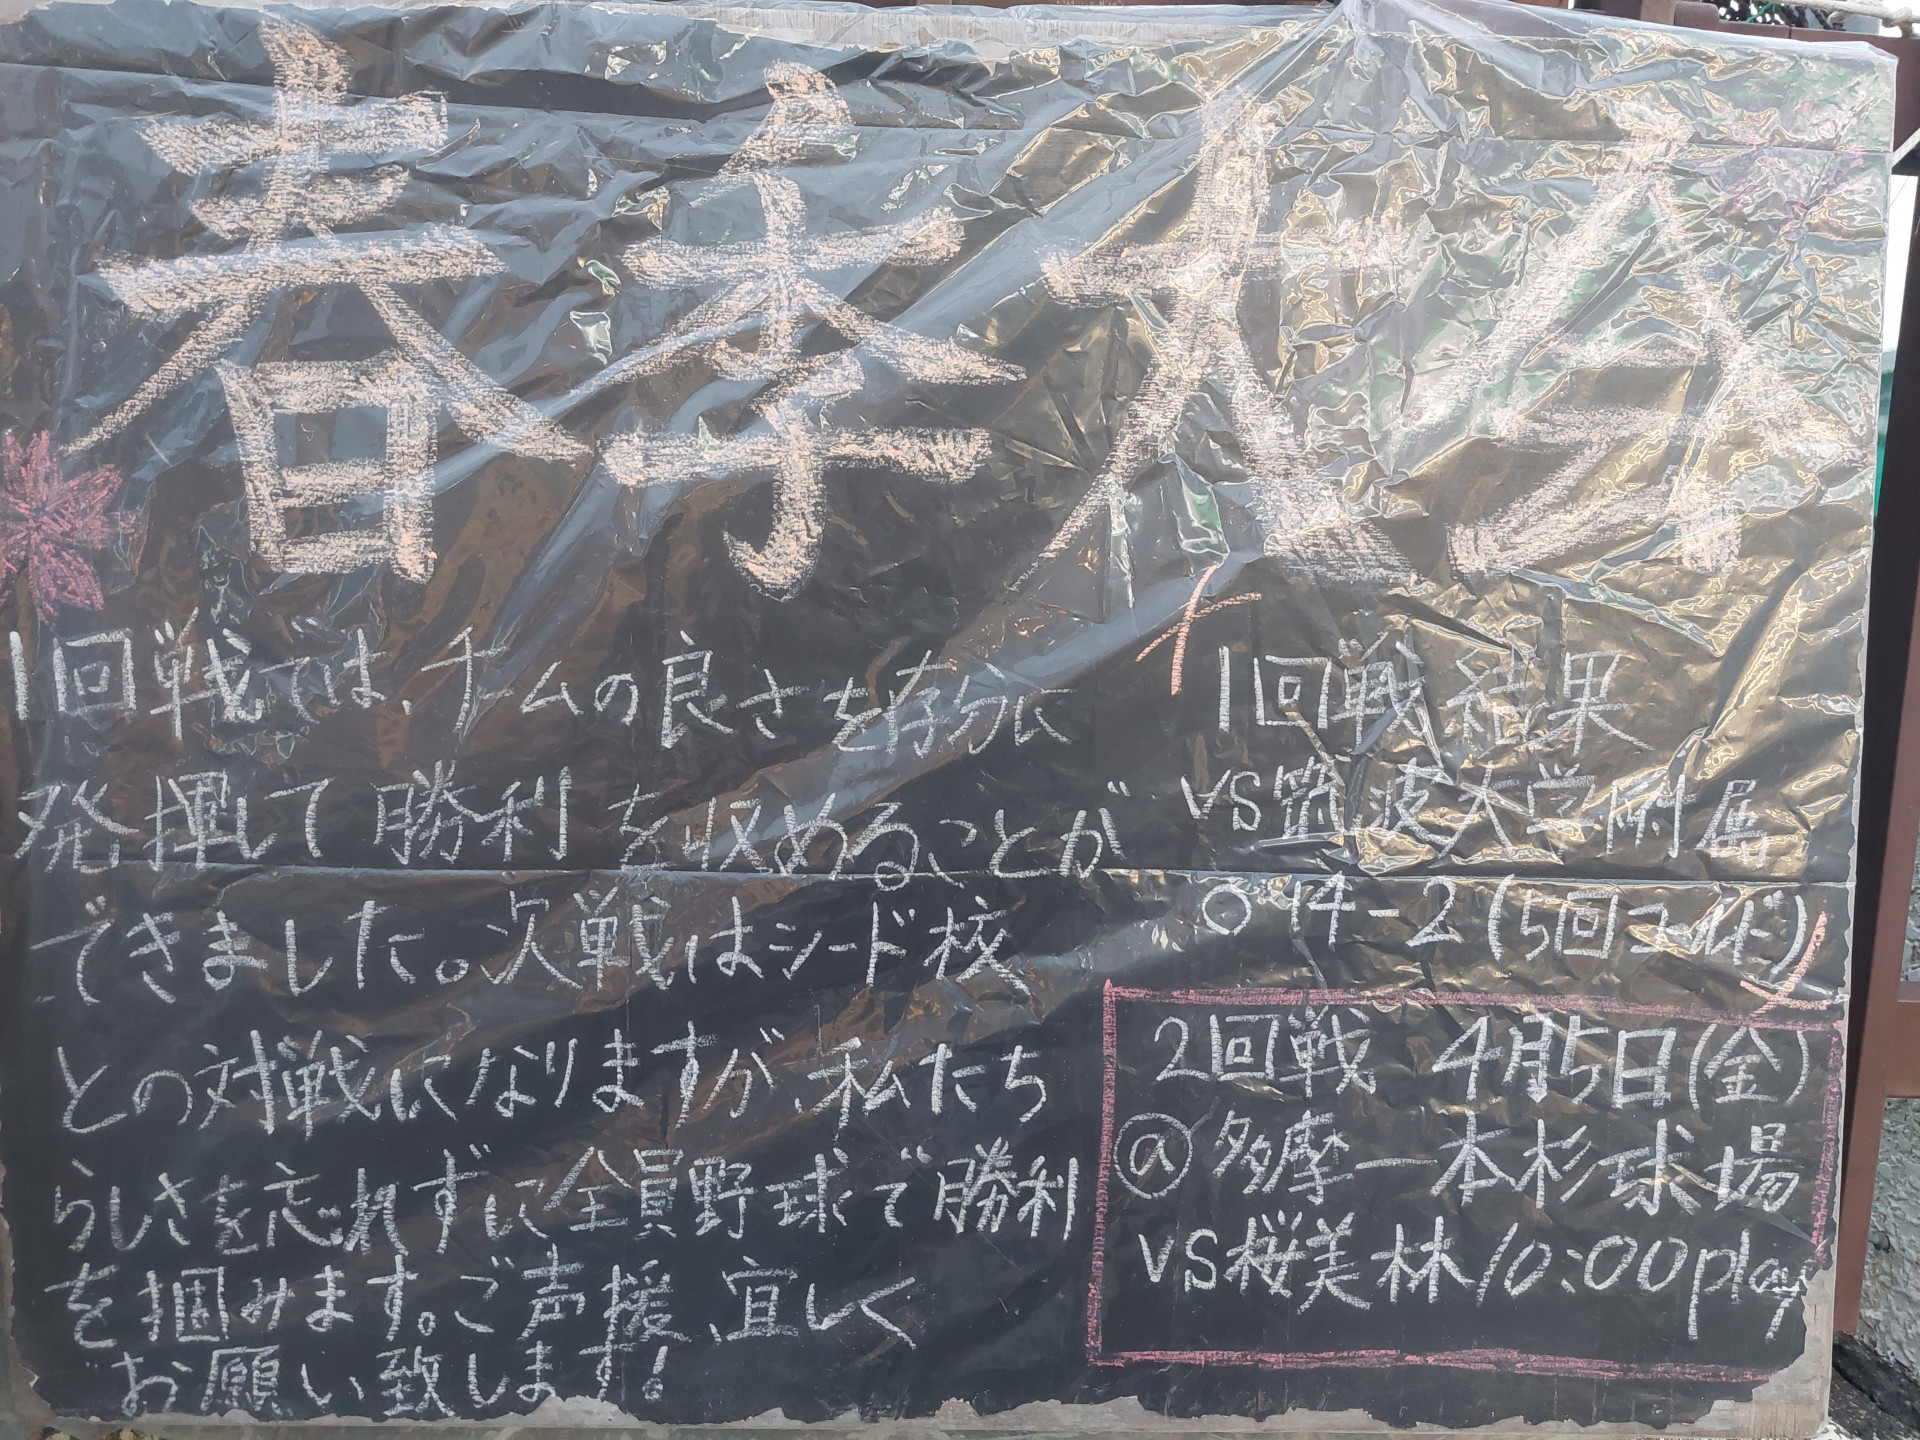 春季大会
1回戦では、チームの良さを存分に
発揮して勝利を収めることが
できました。次戦はシード校
との対戦になりますが、私たち
らしさを忘れずに全員野球で勝利
を掴みます。ご声援、宜しく
お願い致します!
1回戦結果
VS筑波大学附属
○14-2(5回コールド)
2回戦 4月5日(金)
@多摩一本杉球場
VS桜美林 10:00play